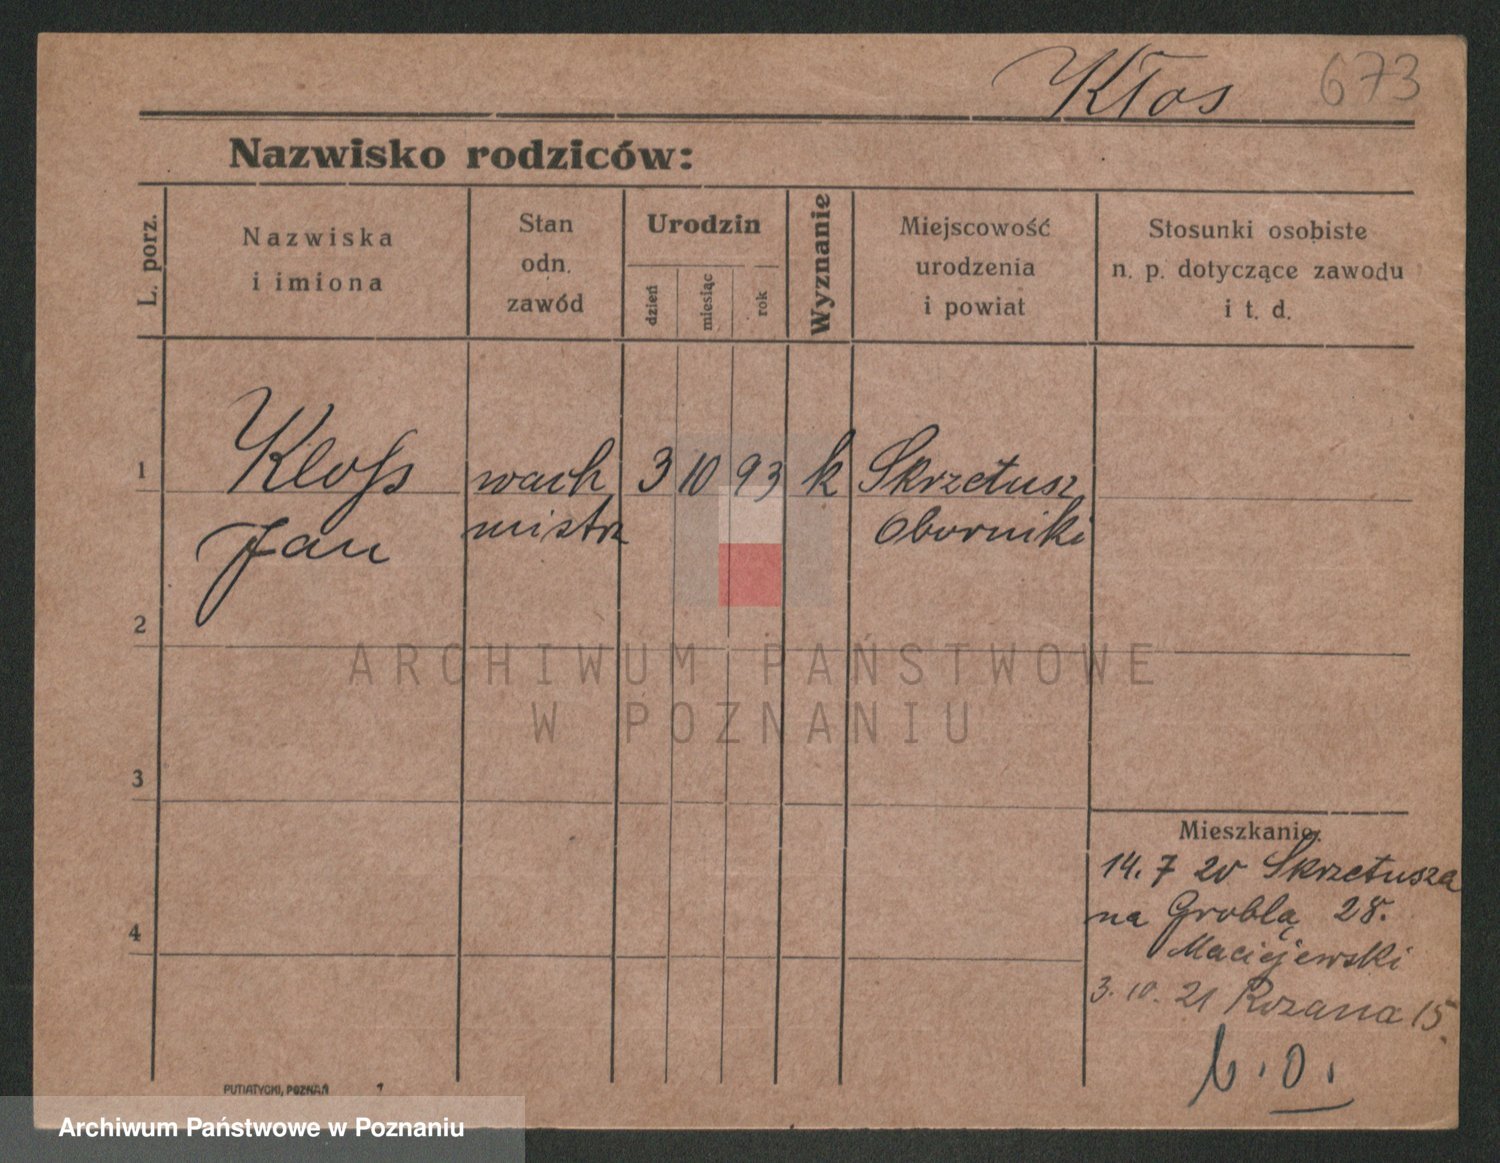 Kłos 673
Nazwisko rodziców:
L. porz.
Nazwiska
i imiona
Stan
odn.
zawód
Urodzin
dzień
miesiąc
rok
Wyznanie
Miejscowość
urodzenia
i powiat
Stosunki osobiste
n. p. dotyczące zawodu
i t. d.
1 Kloss wach 3 10 93 k Skrzetusz
Jan mistrz Oborniki
2
ARCHIWUM PAŃSTWOWE
W POZNANIU
3
Mieszkanie:
14. 7 20 Skrzetusza
na Groblą 28.
4
Maciejewski
3. 10. 21 Rozana 15.
b. o.
PUTIATYCKI, POZNAŃ
Archiwum Państwowe w Poznaniu